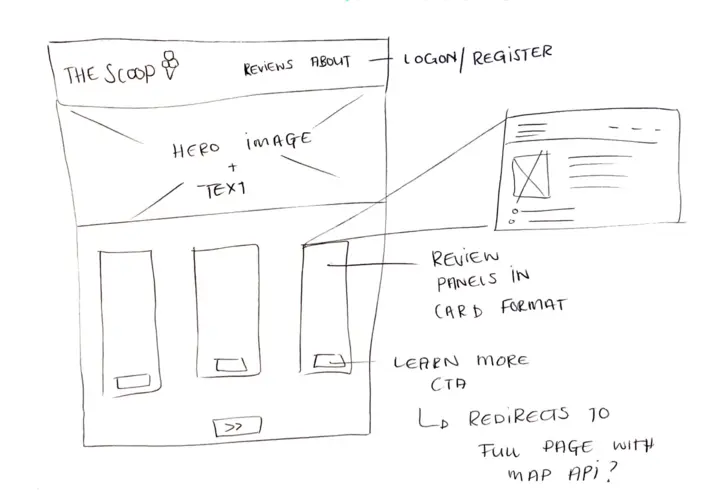 THE SCOOP
REVIEWS ABOUT
LOGON/REGISTER
HERO IMAGE
+
TEXT
REVIEW
PANELS IN
CARD FORMAT
LEARN MORE
CTA
REDIRECTS TO
FULL PAGE WITH
MAP API?
>>